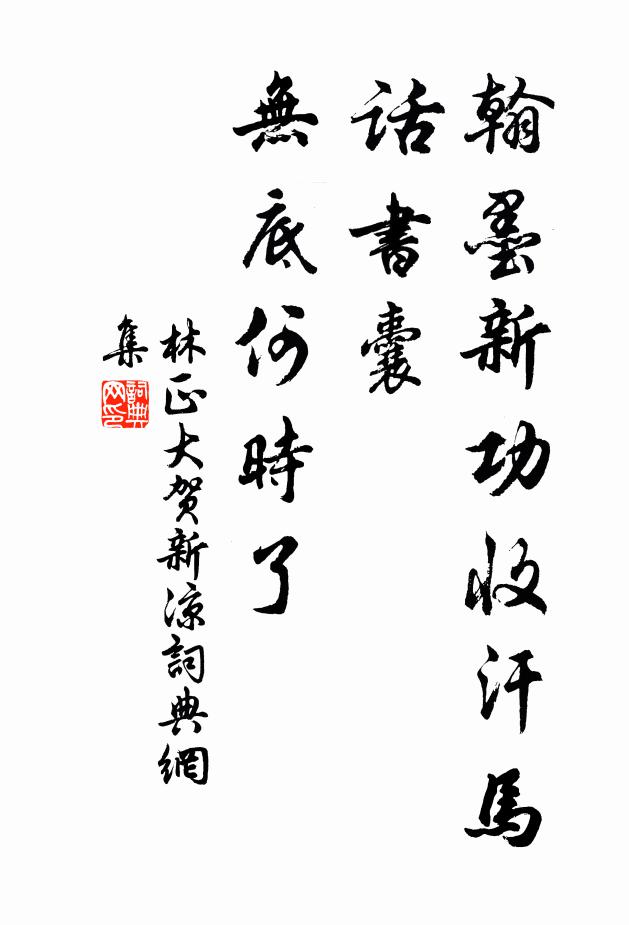 翰墨新功收汗馬
話書囊
無底何時了
林正大賀新涼詞典網
集
詞典網印